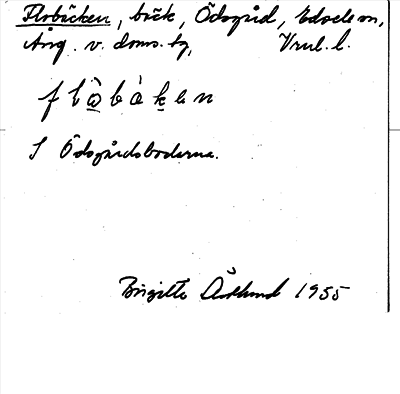 Flobäcken, bäk, Ödsgård, Edsele sn,
Ång. v. doms. tg,
Vrul. l.
f l å b à k e n
S Ödsgårdsbodarna.
Birgitta Ådlund 1955